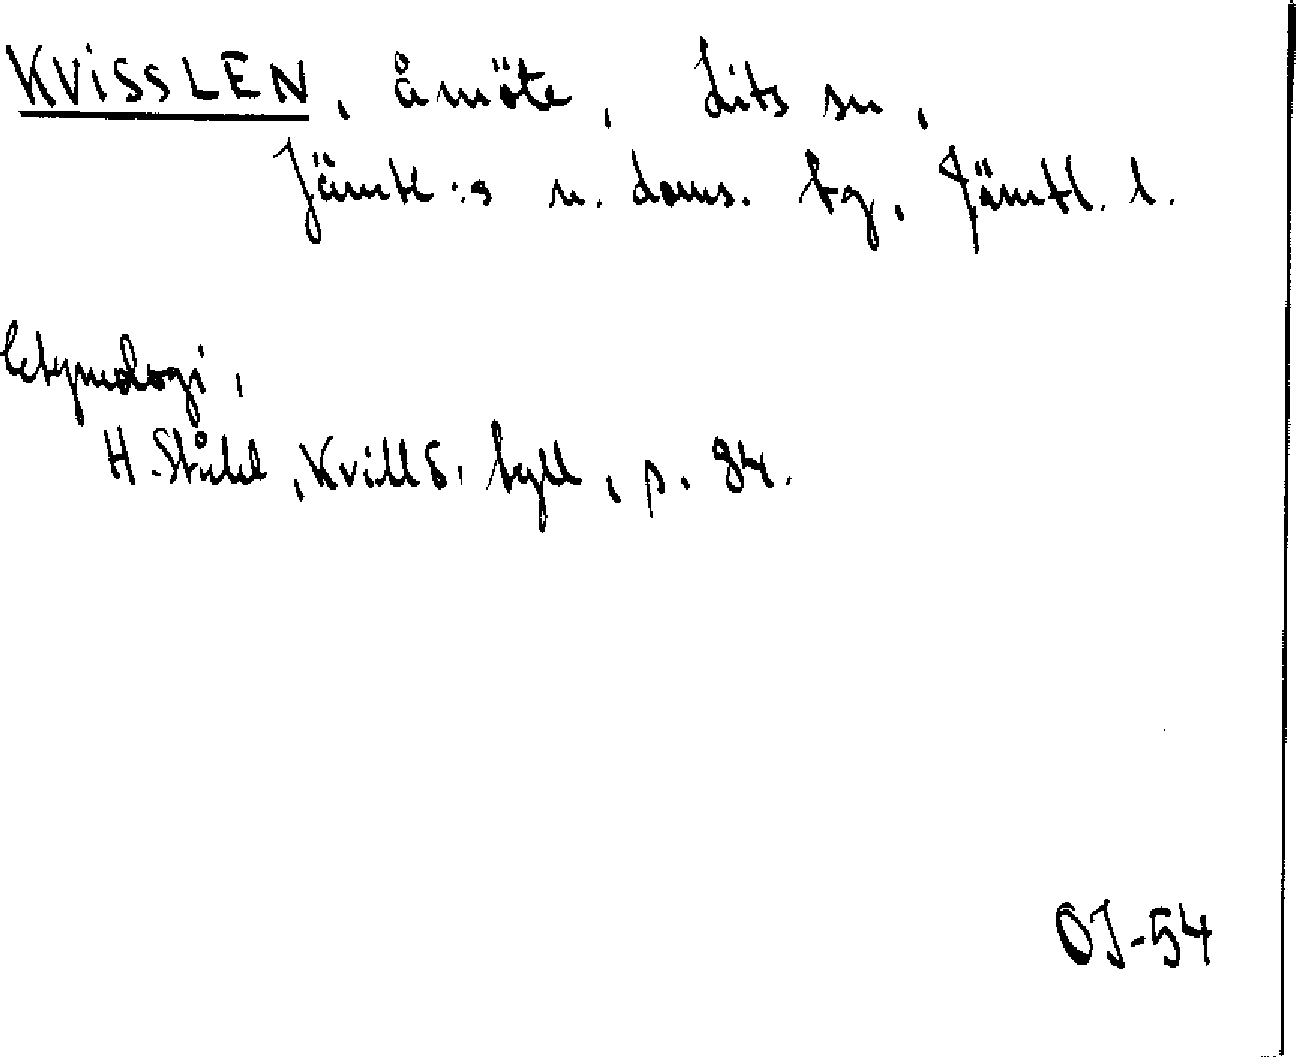 KVISSLEN, åmöte, Lits sn,
Jämtl:s n. doms. tg, Jämtl. l.
Etymologi,
H. Ståhl, Kvill o. tyll, p. 84.
OJ-54